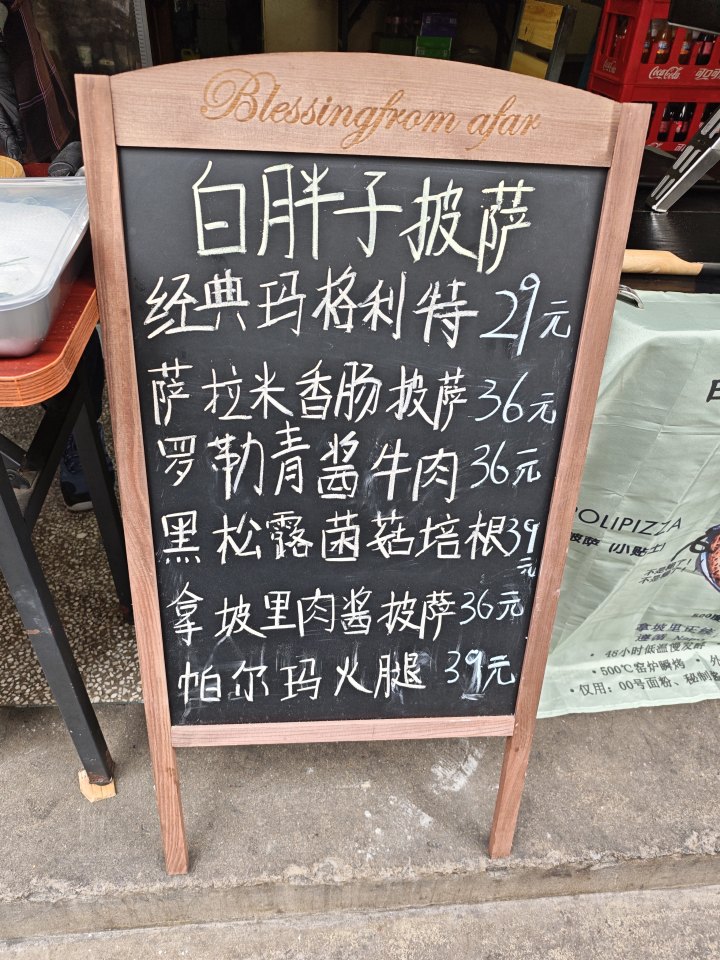 Blessingfrom afar
白胖子披萨
经典玛格利特 29元
萨拉米香肠披萨 36元
罗勒青酱牛肉 36元
黑松露菌菇培根39元
拿坡里肉酱披萨36元
帕尔玛火腿 39元
Coca-Cola
OLIPIZZA
披萨(小贴士)
· 48小时低温慢发酵
· 500℃窑炉瞬烤 · 外
· 仅用:00号面粉、秘制